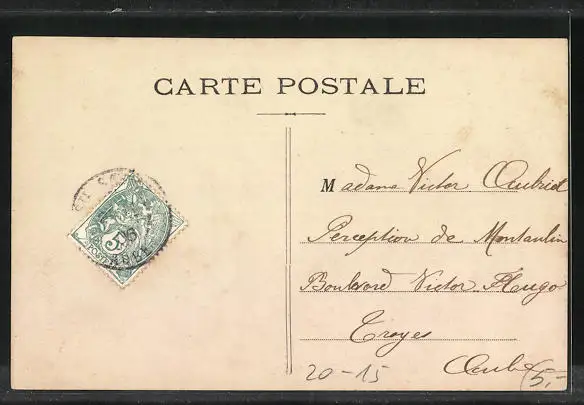 CARTE POSTALE
Madame Victor Aubriet
Perception de Montaulin
Boulevard Victor Hugo
Troyes
Aube
20-15
5,-
5
AUBE